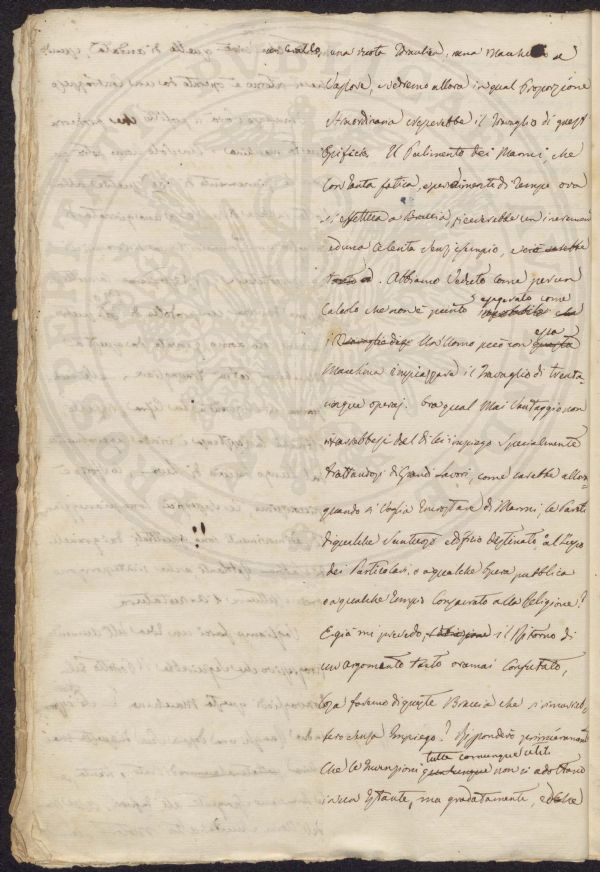 un Cavallo, una ruota Idraulica, una Macchina a
Vapore, vedremo allora in qual Proporzione
straordinaria crescerebbe il Travaglio di quest'
Edificio. Il Pulimento dei Marmi, che
con tanta fatica, e perdimento di Tempo ora
si effettua a Braccia, riceverebbe un incremento
ed una Celerità senz'esempio, e ciò sarebbe
. Abbiamo Veduto come per un
Calcolo che non è punto esagerato come
impossibile che
il Travaglio di Un Uomo però con questa essa
Macchina rimpiazzarà il Travaglio di trenta-
cinque operaj. Ora qual Mai Vantaggio non
ritrarrebbesi del di lei impiego Specialmente
trattandosi di Grandi Lavori, come sarebbe allor-
quando si Voglia Incrostare di Marmi, le Pareti
di qualche Suntuoso edificio destinato al Uso
dei Particolari, o a qualche Opera pubblica
o a qualche Tempio Consacrato alla Religione?
E già mi prevedo, l'obiezione il Ritorno di
un argomento tanto oramai Confutato,
Cosa faremo di queste Braccia che si rimarreb-
bero senza Impiego? Risponderò primieramente
tutte comunque utili
che le Invenzioni quantunque non si adottano
in un Istante, ma gradatamente, e che